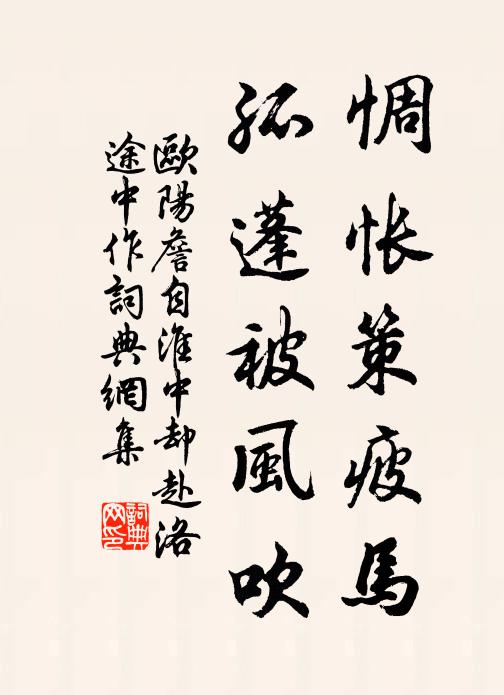 惆悵策疲馬
孤蓬被風吹
歐陽詹自淮中却赴洛
途中作詞典網集
詞典
网印